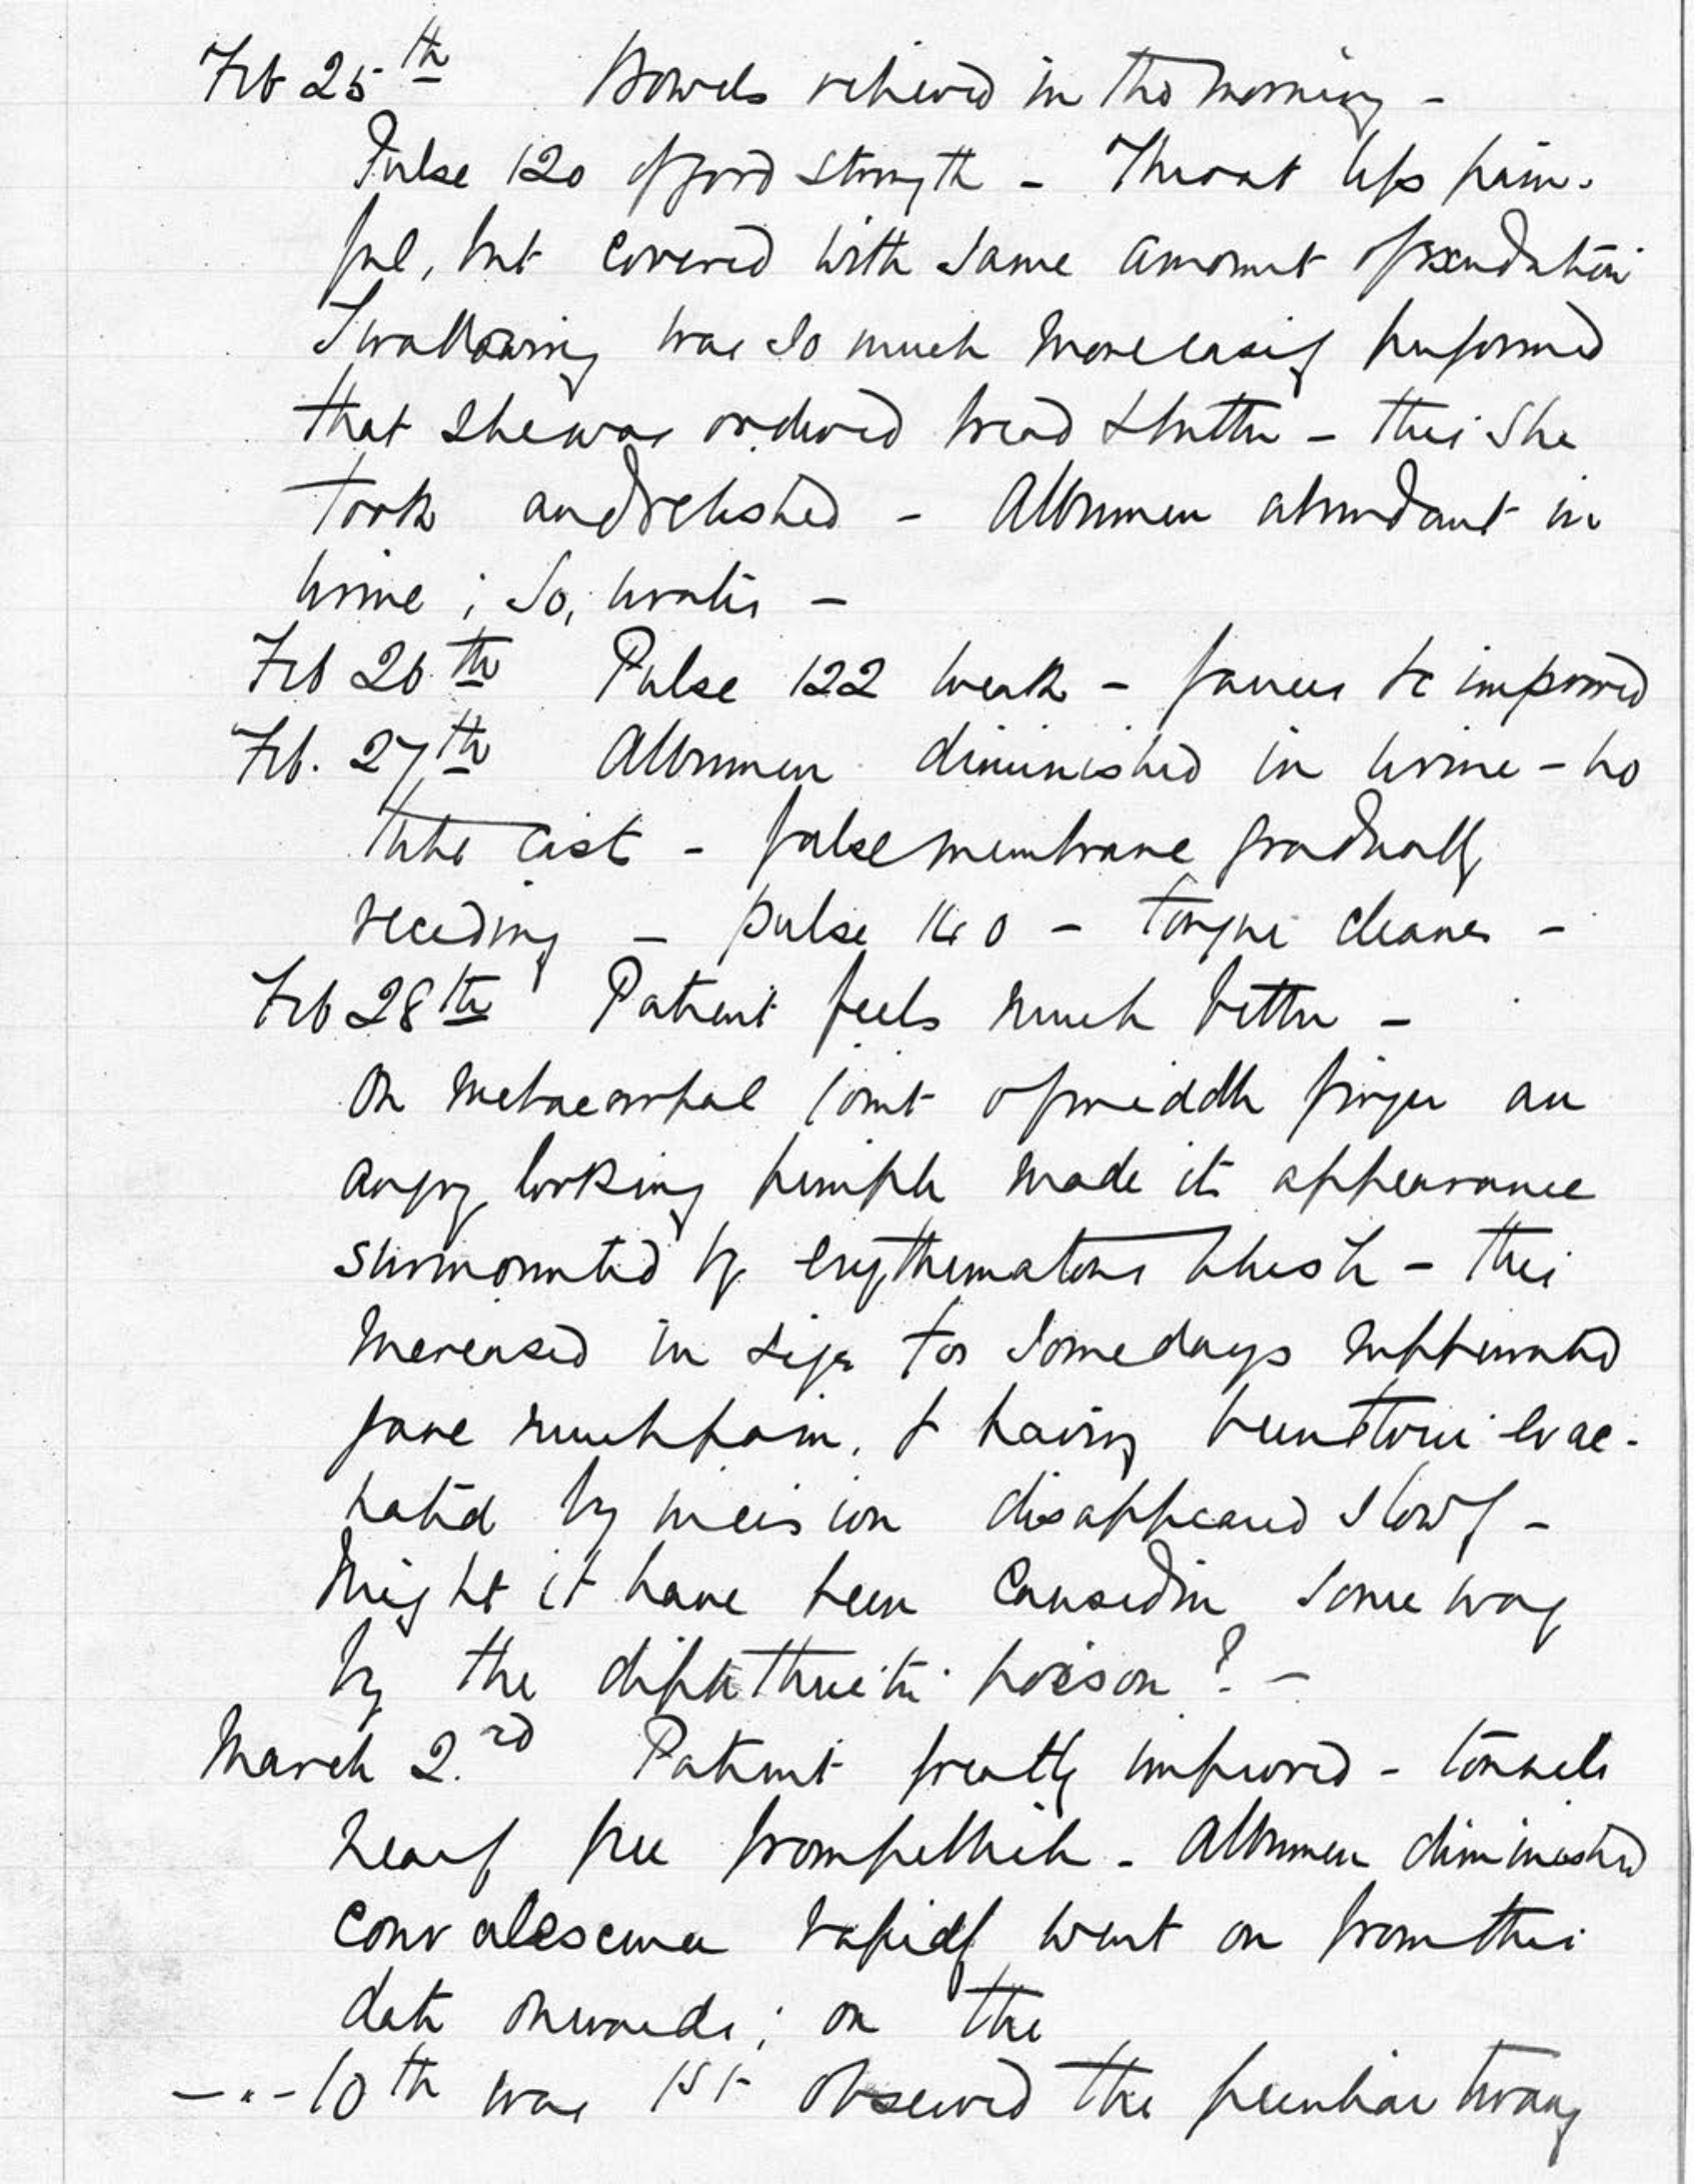 Feb 25th Bowels relieved in the morning -
Pulse 120 of good strength - Throat less pain-
ful, but covered with same amount of exudation
Swallowing was so much more easily performed
that she was ordered bread & butter - this she
took and relished - Albumen abundant in
urine ; so, urates -
Feb 26th Pulse 122 weak - fauces &c improved
Feb. 27th Albumen diminished in urine - no
tube casts - false membrane gradually
receding - pulse 100 - tongue cleaner -
Feb 28th Patient feels much better -
On metacarpal joint of middle finger an
angry looking pimple made its appearance
surmounted by erythematous blush - this
increased in size for some days suppurated
gave much pain, & having been evac-
uated by incision disappeared slowly -
Might it have been caused in some way
by the diphtheritic poison ? -
March 2.nd Patient greatly improved - tonsils
nearly free from pellicle - Albumen diminished
Convalescence rapidly went on from this
date onwards ; on the
-"- 10th was 1st observed the peculiar twang